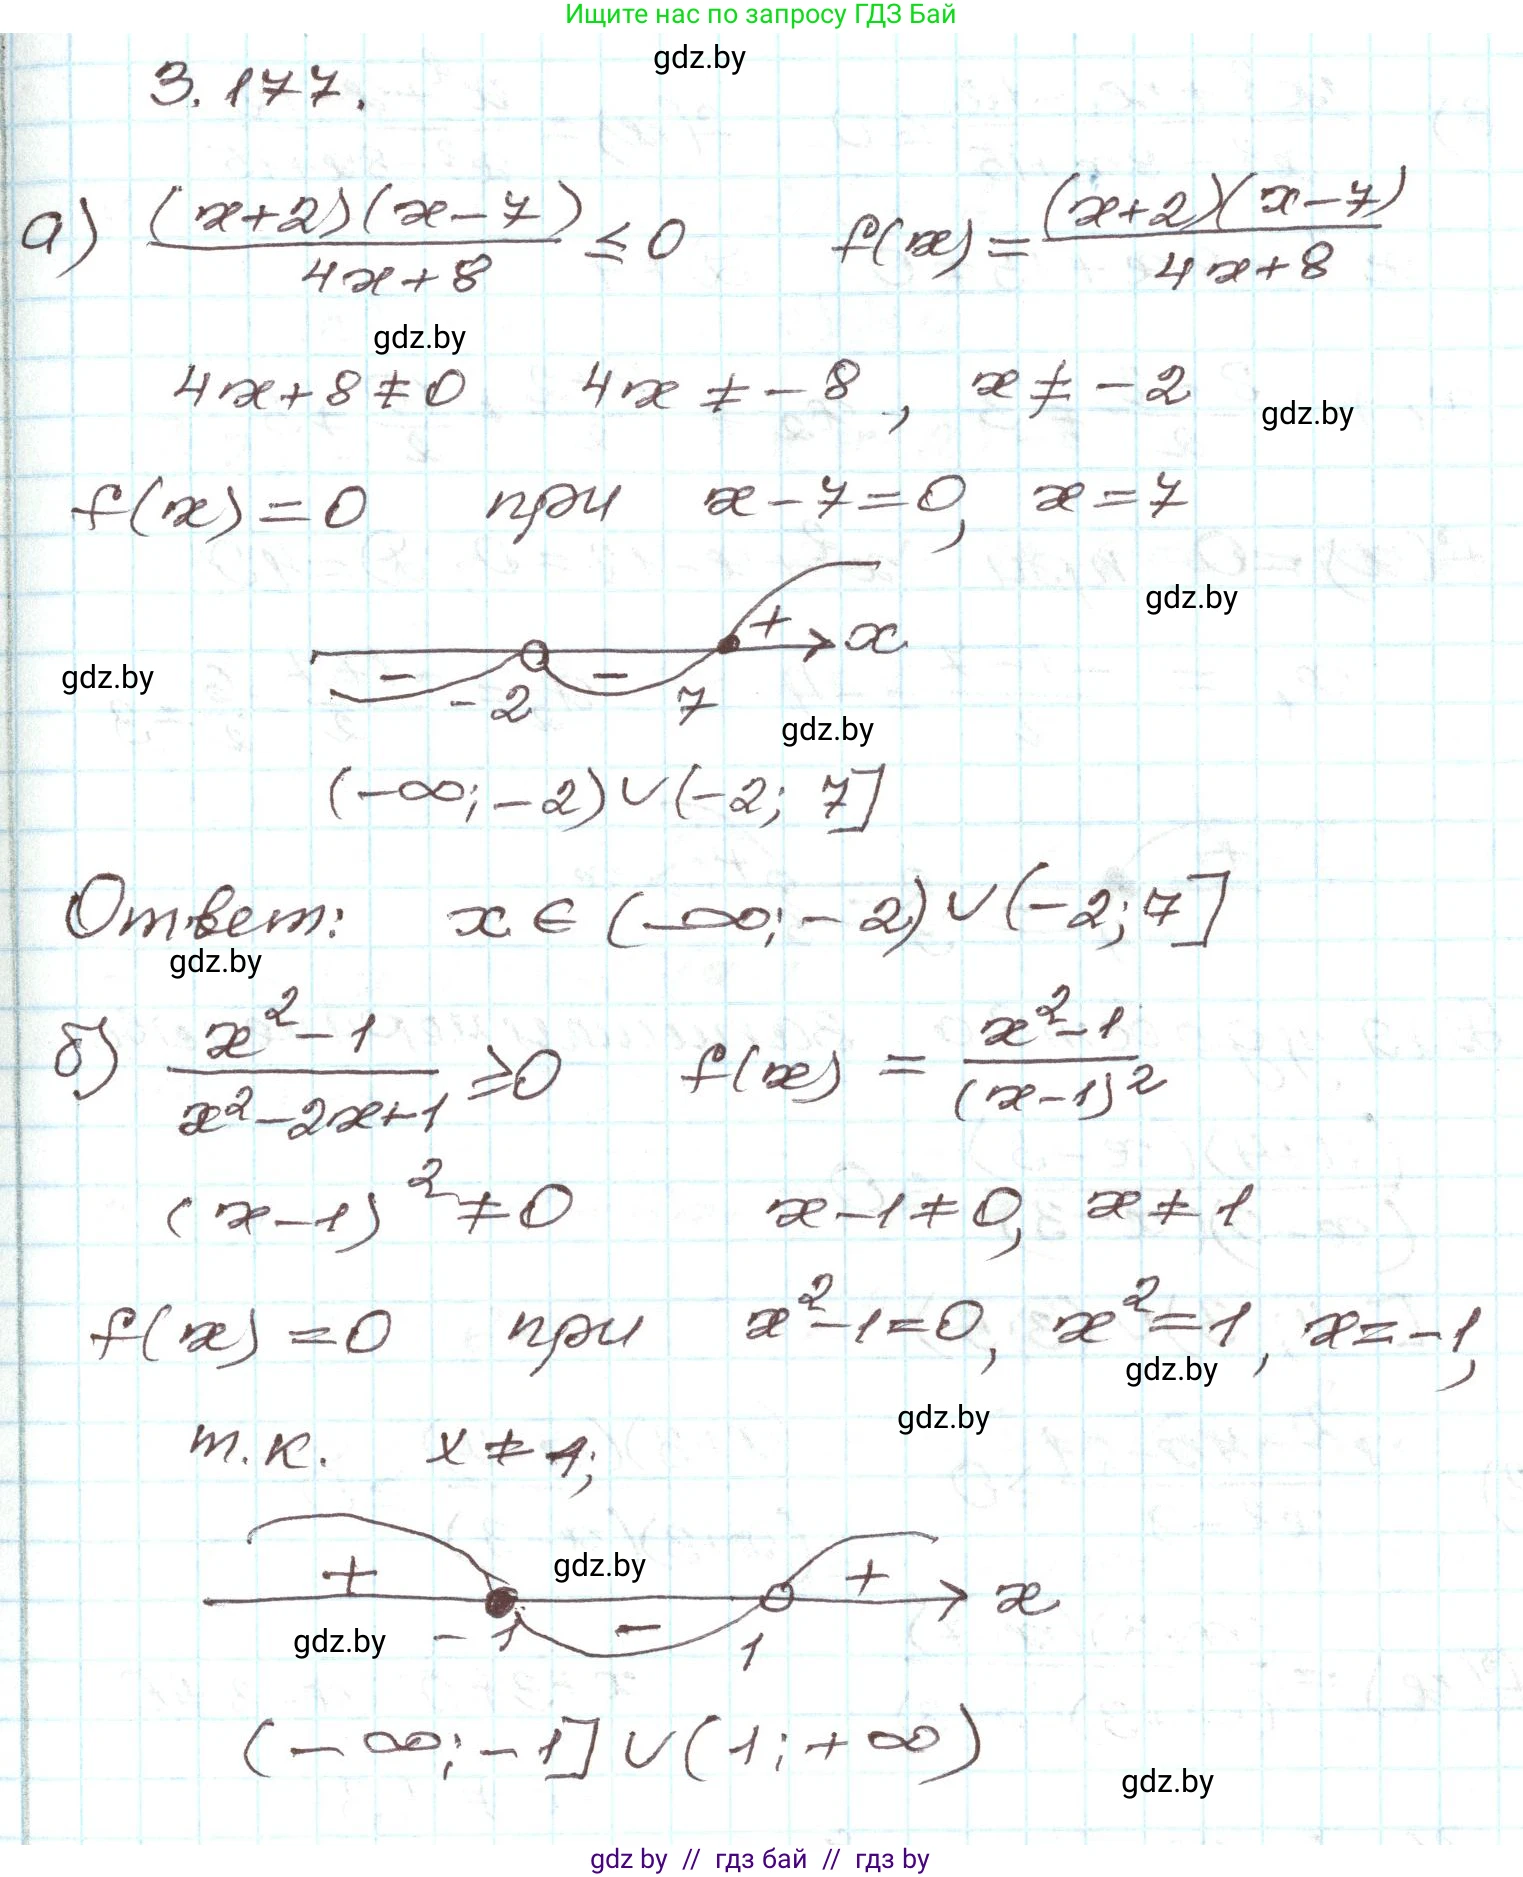 Ищите нас по запросу ГДЗ Бай
gdz.by
3.177.
а) (x+2)(x-7) / 4x+8 ≤ 0     f(x) = (x+2)(x-7) / 4x+8
gdz.by
4x+8 ≠ 0     4x ≠ -8,   x ≠ -2
gdz.by
f(x) = 0   при   x-7=0,   x=7
gdz.by
- -2 - 7 + x
gdz.by
gdz.by
(-∞; -2) ∪ (-2; 7]
Ответ:   x ∈ (-∞; -2) ∪ (-2; 7]
gdz.by
б) x²-1 / x²-2x+1 ≥ 0     f(x) = x²-1 / (x-1)²
(x-1)² ≠ 0     x-1 ≠ 0,   x ≠ 1
f(x) = 0   при   x²-1=0,   x²=1,   x=-1,
gdz.by
gdz.by
т.к.   x ≠ 1;
gdz.by
+ -1 - 1 + x
gdz.by
(-∞; -1] ∪ (1; +∞)
gdz.by
gdz by // гдз бай // гдз by